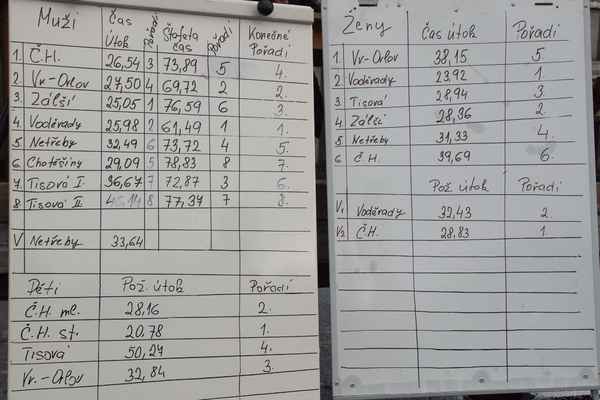 Muži Čas útok Pořadí Štafeta čas Pořadí Konečné Pořadí
1. Č.H. 26,54 3 73,89 5 4.
2 Vr-Orlov 27,50 4 69,72 2 2.
3. Zálší 25,05 1 76,59 6 3.
4. Voděrady 25,98 2 61,49 1 1.
5 Netřeby 32,49 6 73,72 4 5.
6 Chotešiny 29,09 5 78,93 8 7.
7. Tisová I. 36,67 7 72,87 3 6.
8 Tisová II. 8 77,37 7 8.
V Netřeby 33,64
Děti Pož. útok Pořadí
Č.H. ml. 28,16 2.
Č.H. st. 20.78 1.
Tisová 50,27 4.
Vr.-Orlov 32,84 3.
Ženy Čas útok Pořadí
1. Vr-Orlov 38,15 5
2. Voděrady 23,92 1
3 Tisová 28,94 3
4 Zálší 28,36 2.
5 Netřeby 31,33 4.
6 Č.H. 39,69 6.
Pož útok Pořadí
V1 Voděrady 32,43 2.
V2 Č.H. 28,83 1